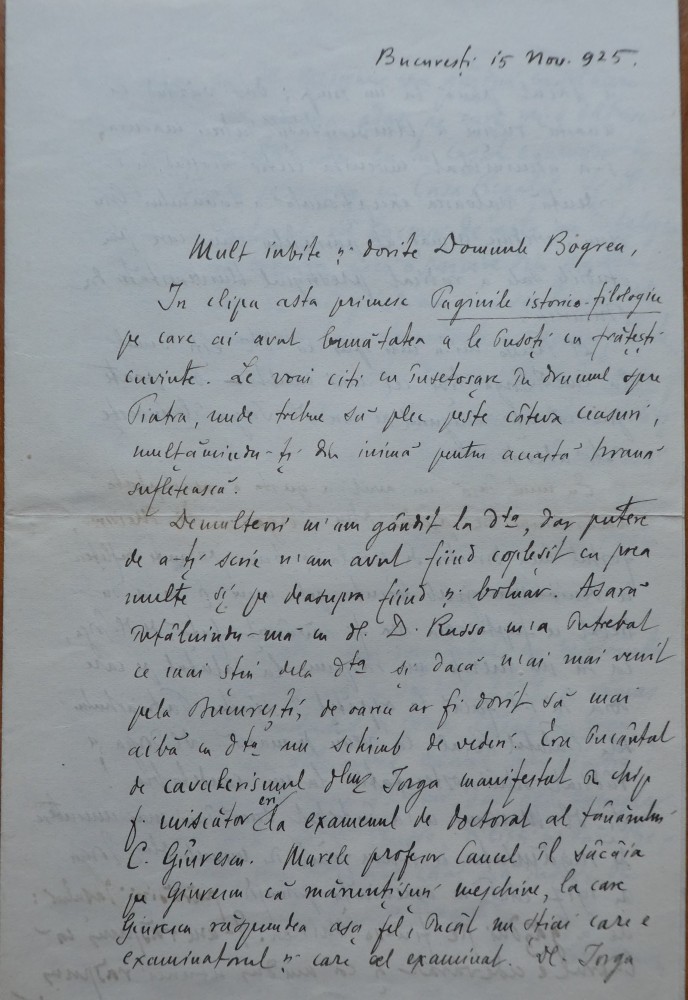 București 15 Nov. 925.
Mult iubite și dorite Domnule Bogrea,
In clipa asta primesc Paginile istorico-filologice
pe care ai avut bunătatea a le însoți cu frățești
cuvinte. Le voiu citi cu însetoșare în drumul spre
Piatra, unde trebue să plec peste câteva ciasuri,
mulțămindu-ți din inimă pentru această hrană
sufletească.
De multeori m'am gândit la dta, dar putere
de a-ți scrie n'am avut fiind copleșit cu prea
multe și pe deasupra fiind și bolnav. Asară
întâlnindu-mă cu dl. D. Russo m'a întrebat
ce mai știu dela dta și dacă n'ai mai venit
pela București, de oarece ar fi dorit să mai
aibă cu dta un schimb de vederi. Era încântat
de cavalerismul dlui Iorga manifestat în chip
f. mișcător eri la examenul de doctorat al tânărului
C. Giurescu. Marele profesor Cancel îl sâcâia
pe Giurescu cu mărunțișuri meschine, la care
Giurescu răspundea așa fel, încât nu știai care e
examinatorul și care cel examinat. Dl. Iorga